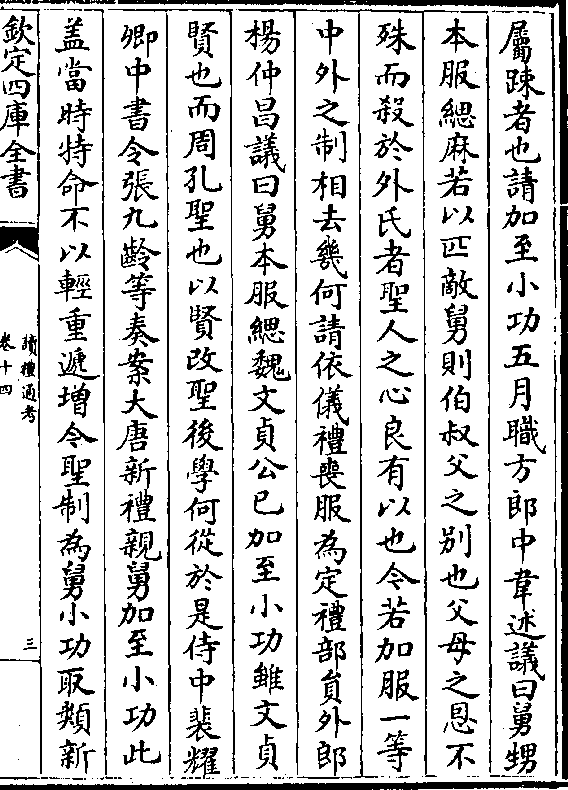 屬疎者也請加至小功五月職方郎中韋述議曰舅甥
本服緦麻若以匹敵舅則伯叔父之别也父母之恩不
殊而殺於外氏者聖人之心良有以也今若加服一等
中外之制相去幾何請依儀禮喪服為定禮部員外郎
楊仲昌議曰舅本服緦魏文貞公已加至小功雖文貞
賢也而周孔聖也以賢改聖後學何從於是侍中裴耀
卿中書令張九齡等奏案大唐新禮親舅加至小功此
盖當時特命不以輕重遞增今聖制為舅小功取類新
欽定四庫全書
讀禮通考
卷十四
三